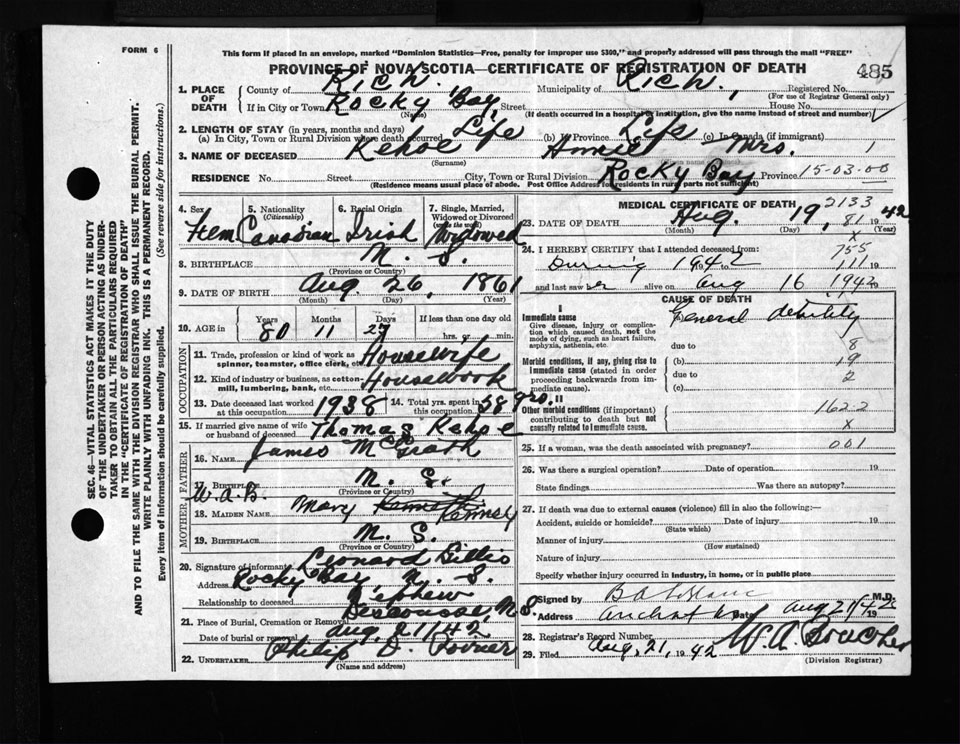 FORM 6
This form if placed in an envelope, marked "Dominion Statistics—Free, penalty for improper use $300," and properly addressed will pass through the mail "FREE"
PROVINCE OF NOVA SCOTIA—CERTIFICATE OF REGISTRATION OF DEATH
485
1. PLACE OF DEATH County of Rich. Municipality of Rich. Registered No.
(For use of Registrar General only)
If in City or Town Rocky Bay, Street House No.
(Name) (If death occurred in a hospital or institution, give the name instead of street and number)
2. LENGTH OF STAY (in years, months and days)
(a) In City, Town or Rural Division where death occurred Life (b) In Province Life (c) In Canada (if immigrant)
3. NAME OF DECEASED Kehoe Annie Mrs. 1
(Surname)
RESIDENCE No. Street City, Town or Rural Division Rocky Bay Province 15-03-00
(Residence means usual place of abode. Post Office Address for residents in rural parts not sufficient)
4. Sex Fem
5. Nationality (Citizenship) Canadian
6. Racial Origin Irish
7. Single, Married, Widowed or Divorced (write the word) Widowed
8. BIRTHPLACE N. S.
(Province or Country)
9. DATE OF BIRTH Aug. 26, 1861
(Month) (Day) (Year)
10. AGE in Years Months Days If less than one day old
80 11 27 hrs. or min.
OCCUPATION
11. Trade, profession or kind of work as spinner, teamster, office clerk, etc. Housewife
12. Kind of industry or business, as cotton-mill, lumbering, bank, etc. Housework
13. Date deceased last worked at this occupation 1938
14. Total yrs. spent in this occupation 58 yrs.
15. If married give name of wife or husband of deceased Thomas Kehoe
FATHER
16. Name James McGrath
17. Birthplace N. S.
(Province or Country)
W.A.B.
MOTHER
18. MAIDEN NAME Mary Kenney
19. BIRTHPLACE N. S.
(Province or Country)
20. Signature of informant Leonard Gillis
Address Rocky Bay, N. S.
Relationship to deceased Nephew
21. Place of Burial, Cremation or Removal Descousse, N S.
Date of burial or removal Aug. 21/42
22. UNDERTAKER Philip D. Poirier
(Name and address)
MEDICAL CERTIFICATE OF DEATH
2133
23. DATE OF DEATH Aug. 19, 81 1942
(Month) (Day)
x
24. I HEREBY CERTIFY that I attended deceased from:
755
During 1942 to 111 19
and last saw her alive on Aug 16 1942
CAUSE OF DEATH
I
Immediate cause General debility
Give disease, injury or complication which caused death, not the mode of dying, such as heart failure, asphyxia, asthenia, etc.
due to 8
Morbid conditions, if any, giving rise to immediate cause (stated in order proceeding backwards from immediate cause).
(b) 19
due to 2
(c)
II
Other morbid conditions (if important) contributing to death but not causally related to immediate cause.
162-2
x
25. If a woman, was the death associated with pregnancy? 001
26. Was there a surgical operation? Date of operation 19
State findings Was there an autopsy?
27. If death was due to external causes (violence) fill in also the following:—
Accident, suicide or homicide? Date of injury 19
(State which)
Manner of injury
(How sustained)
Nature of injury
Specify whether injury occurred in industry, in home, or in public place
Signed by B A LeBlanc M.D.
Address Arichat N S Date Aug 21/42 19
28. Registrar's Record Number
29. Filed Aug, 21, 1942 W. A. Boucher
(Division Registrar)
SEC. 46—VITAL STATISTICS ACT MAKES IT THE DUTY OF THE UNDERTAKER OR PERSON ACTING AS UNDERTAKER TO OBTAIN ALL THE PARTICULARS REQUIRED IN THE "CERTIFICATE OF REGISTRATION OF DEATH" AND TO FILE THE SAME WITH THE DIVISION REGISTRAR WHO SHALL ISSUE THE BURIAL PERMIT.
WRITE PLAINLY WITH UNFADING INK. THIS IS A PERMANENT RECORD.
Every item of information should be carefully supplied. (See reverse side for instructions.)